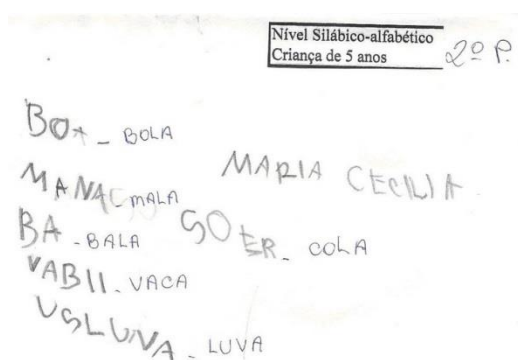 Nível Silábico-alfabético
Criança de 5 anos 2º P.
BOA - BOLA
MARIA CECILIA
MANA MALA
BA - BALA
SOER - COLA
VABII - VACA
USLUVA - LUVA